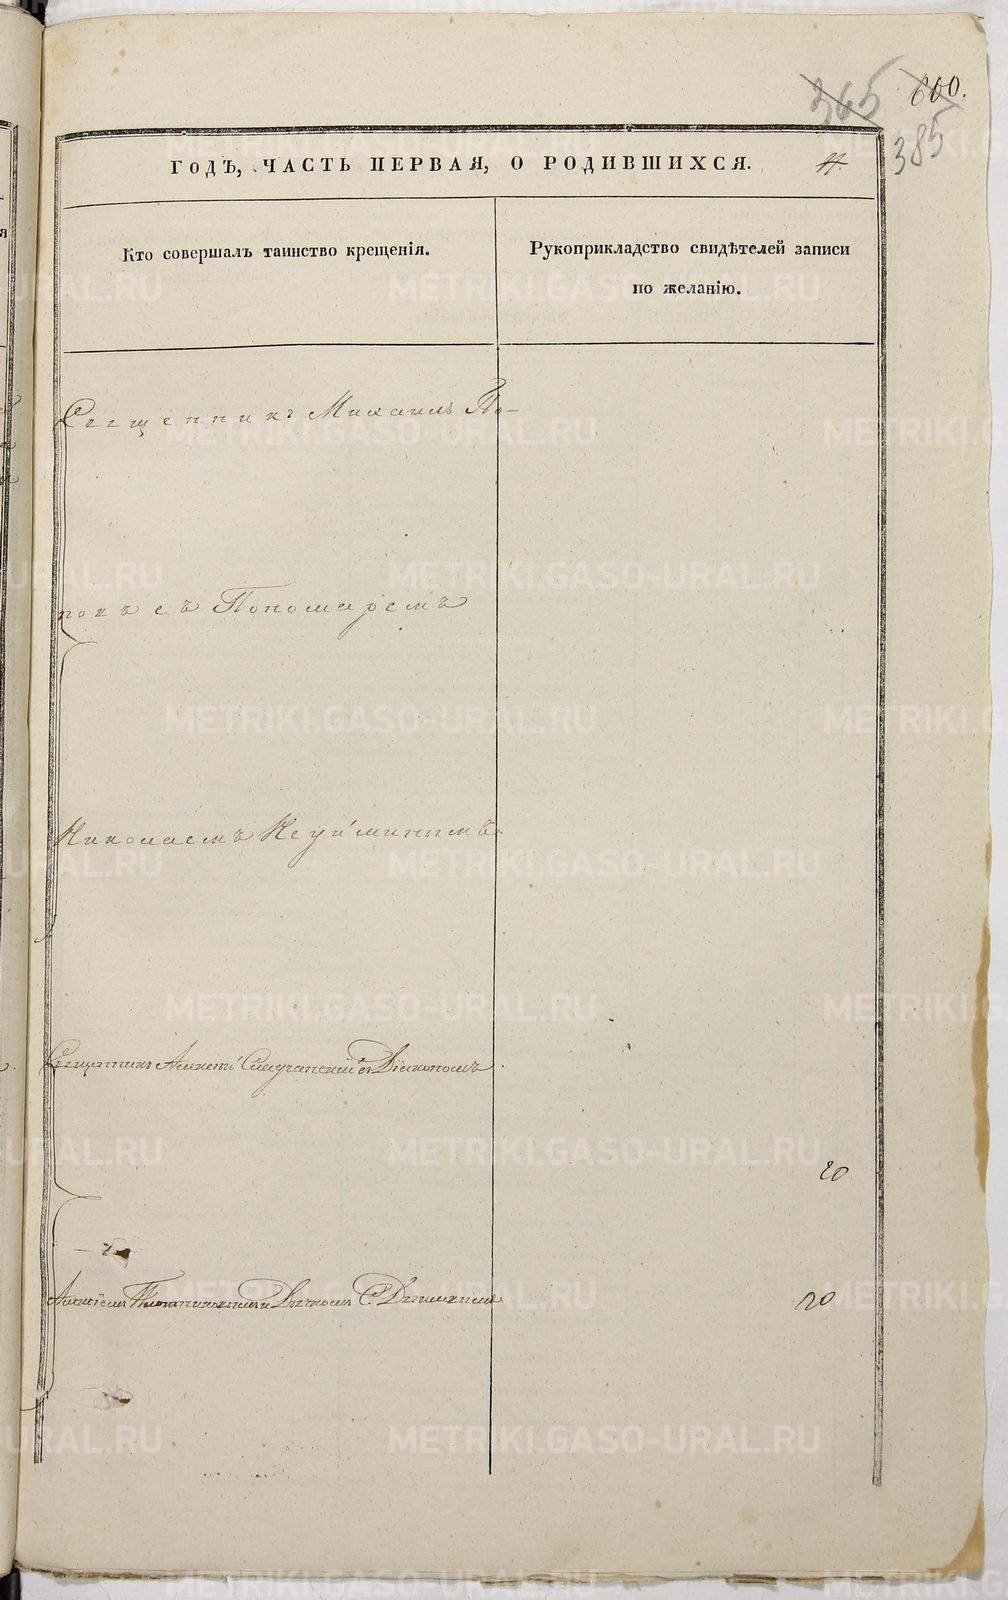 365 600.
385
ГОДЪ, ЧАСТЬ ПЕРВАЯ, О РОДИВШИХСЯ.
Кто совершалъ таинство крещенія.
Рукоприкладство свидѣтелей записи
по желанію.
Священникъ Михаилъ По-
повъ съ Пономаремъ
Николаемъ Неуйминымъ.
Священникъ Алексій съ Діакономъ
20
Алексіемъ и Дьячкомъ С.
20
METRIKI.GASO-URAL.RU